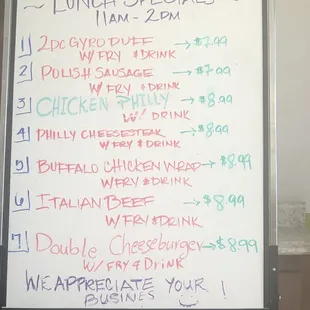 ~ LUNCH SPECIALS ~
11AM - 2PM
1 2PC GYRO PUFF → $7.99
W/ FRY & DRINK
2 POLISH SAUSAGE → $7.99
W/ FRY & DRINK
3 CHICKEN PHILLY → $8.99
W/ DRINK
4 PHILLY CHEESESTEAK → $8.99
W/ FRY & DRINK
5 BUFFALO CHICKEN WRAP → $8.99
W/ FRY & DRINK
6 ITALIAN BEEF → $8.99
W/ FRY & DRINK
7 Double Cheeseburger → $8.99
W/ FRY & DRINK
WE APPRECIATE YOUR
BUSINES !